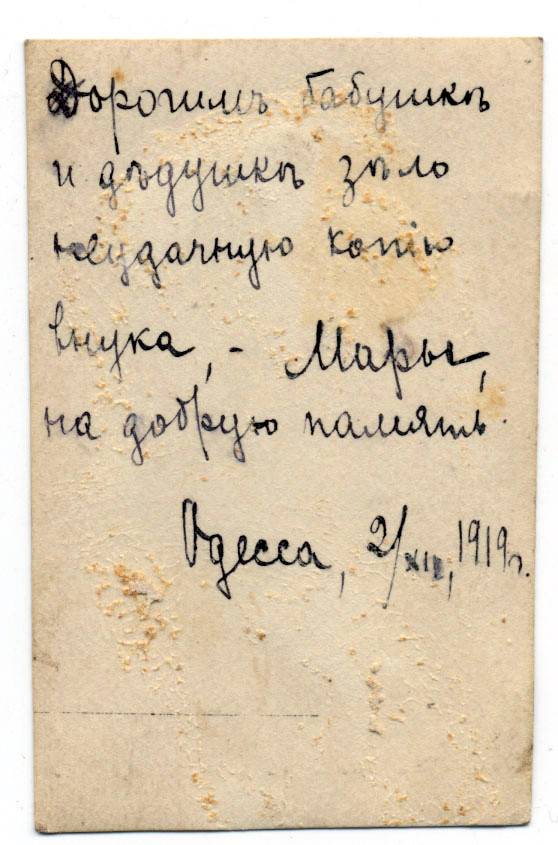 Дорогимъ бабушкѣ
и дѣдушкѣ зѣло
неудачную копію
внука, - Мары,
на добрую память.
Одесса, 2/XII, 1919г.